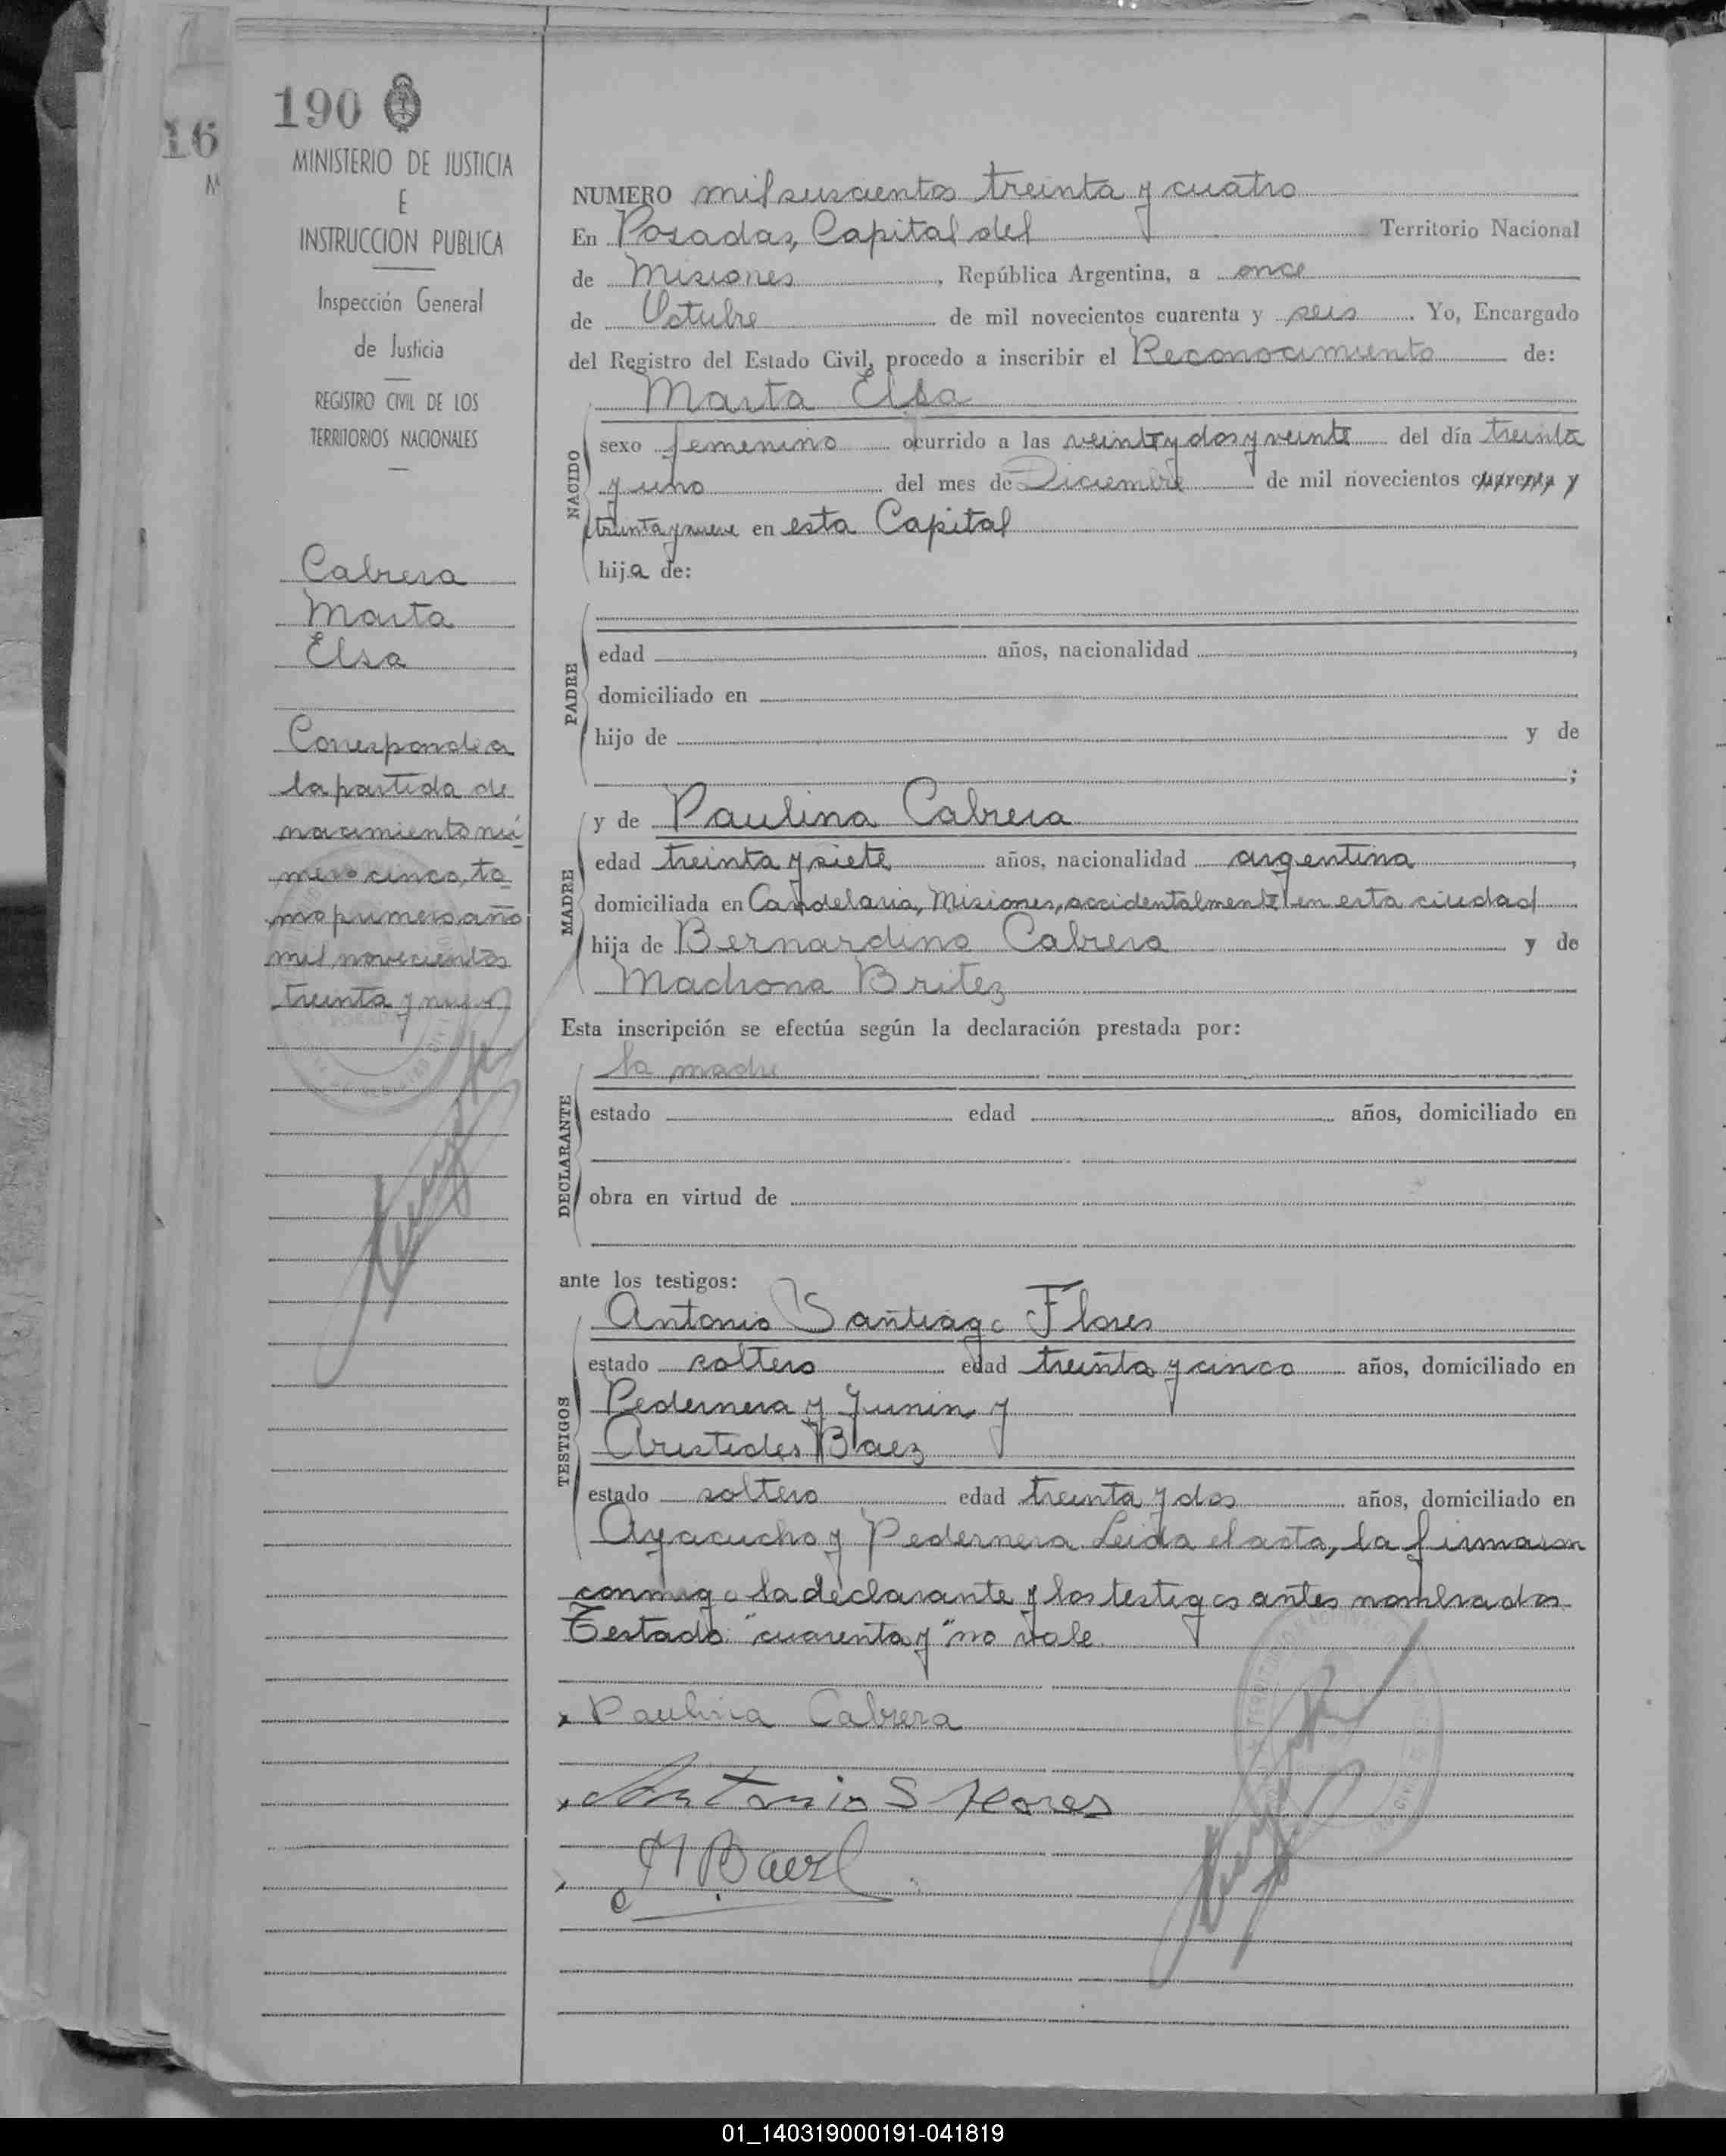 190
16
M
MINISTERIO DE JUSTICIA
E
INSTRUCCION PUBLICA
Inspección General
de Justicia
REGISTRO CIVIL DE LOS
TERRITORIOS NACIONALES
Cabrera
Marta
Elsa
Corresponde a
la partida de
nacimiento nú-
mero cinco, to-
mo primero año
mil novecientos
treinta y nueve
NUMERO mil seiscientos treinta y cuatro
En Posadas, Capital del Territorio Nacional
de Misiones, República Argentina, a once
de Octubre de mil novecientos cuarenta y seis. Yo, Encargado
del Registro del Estado Civil, procedo a inscribir el Reconocimiento de:
Marta Elsa
NACIDO
sexo femenino ocurrido a las veinte y dos y veinte del día treinta
y uno del mes de Diciembre de mil novecientos cuarenta y
treinta y nueve en esta Capital
hija de:
PADRE
edad años, nacionalidad ,
domiciliado en
hijo de y de
;
MADRE
y de Paulina Cabrera
edad treinta y siete años, nacionalidad argentina ,
domiciliada en Candelaria, Misiones, accidentalmente en esta ciudad
hija de Bernardino Cabrera y de
Madrona Britez
Esta inscripción se efectúa según la declaración prestada por:
la madre
DECLARANTE
estado edad años, domiciliado en
obra en virtud de
ante los testigos:
TESTIGOS
Antonio Santiago Flores
estado soltero edad treinta y cinco años, domiciliado en
Pedernera y Junin y
Aristides Baez
estado soltero edad treinta y dos años, domiciliado en
Ayacucho y Pedernera Leida el acta, la firmaron
conmigo la declarante y los testigos antes nombrados.
Testado "cuarenta y" no vale.
Paulina Cabrera
Antonio S Flores
Baez
01_140319000191-041819